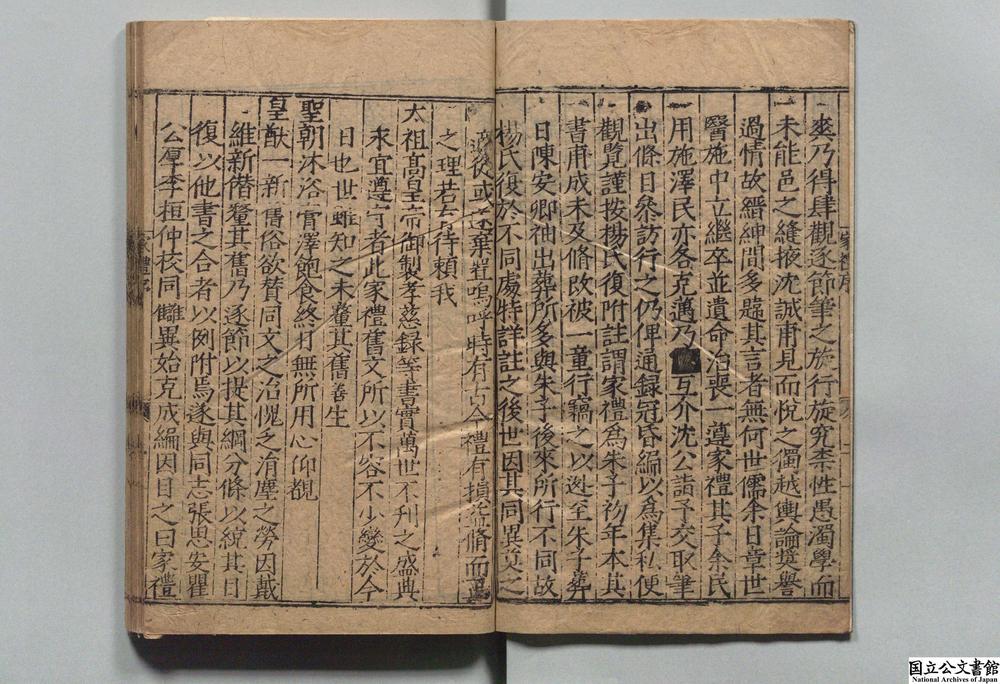 來乃得肆觀逐節筆之旋行旋究柰性愚濁學而
未能邑之縫掖沈誠甫見而悅之獨越輿論奬譽
過情故縉紳間多韙其言者無何世儒余日章世
醫施中立繼卒並遺命治喪一遵家禮其子余民
用施澤民亦各克邁乃 互介沈公詣予交取筆
出條目叅訪行之仍俾通録冠昏編以爲集私便
觀覽謹按楊氏復附註謂家禮爲朱子初年本其
書甫成未及脩改被一童行竊之以逃至朱子葬
日陳安卿袖出葬所多與朱子後來所行不同故
楊氏復於不同處特詳註之後世因其同異莫之
從或遂棄嗚呼時有古今禮有損益脩而
之理若有待頼我
太祖高皇帝御製孝慈録等書實萬世不刊之盛典
来宜遵守者此家禮舊文所以不容不少變於今
日也世雖知之未釐其舊善生
聖朝沐浴膏澤飽食終日無所用心仰覩
皇猷一新舊俗欲賛同文之治愧乏涓塵之勞因戴
維新潛釐其舊乃逐節以提其綱分條以統其目
復以他書之合者以例附焉遂與同志張思安瞿
公厚李桓仲校同讎異始克成編因目之曰家禮
家禮序
国立公文書館
National Archives of Japan